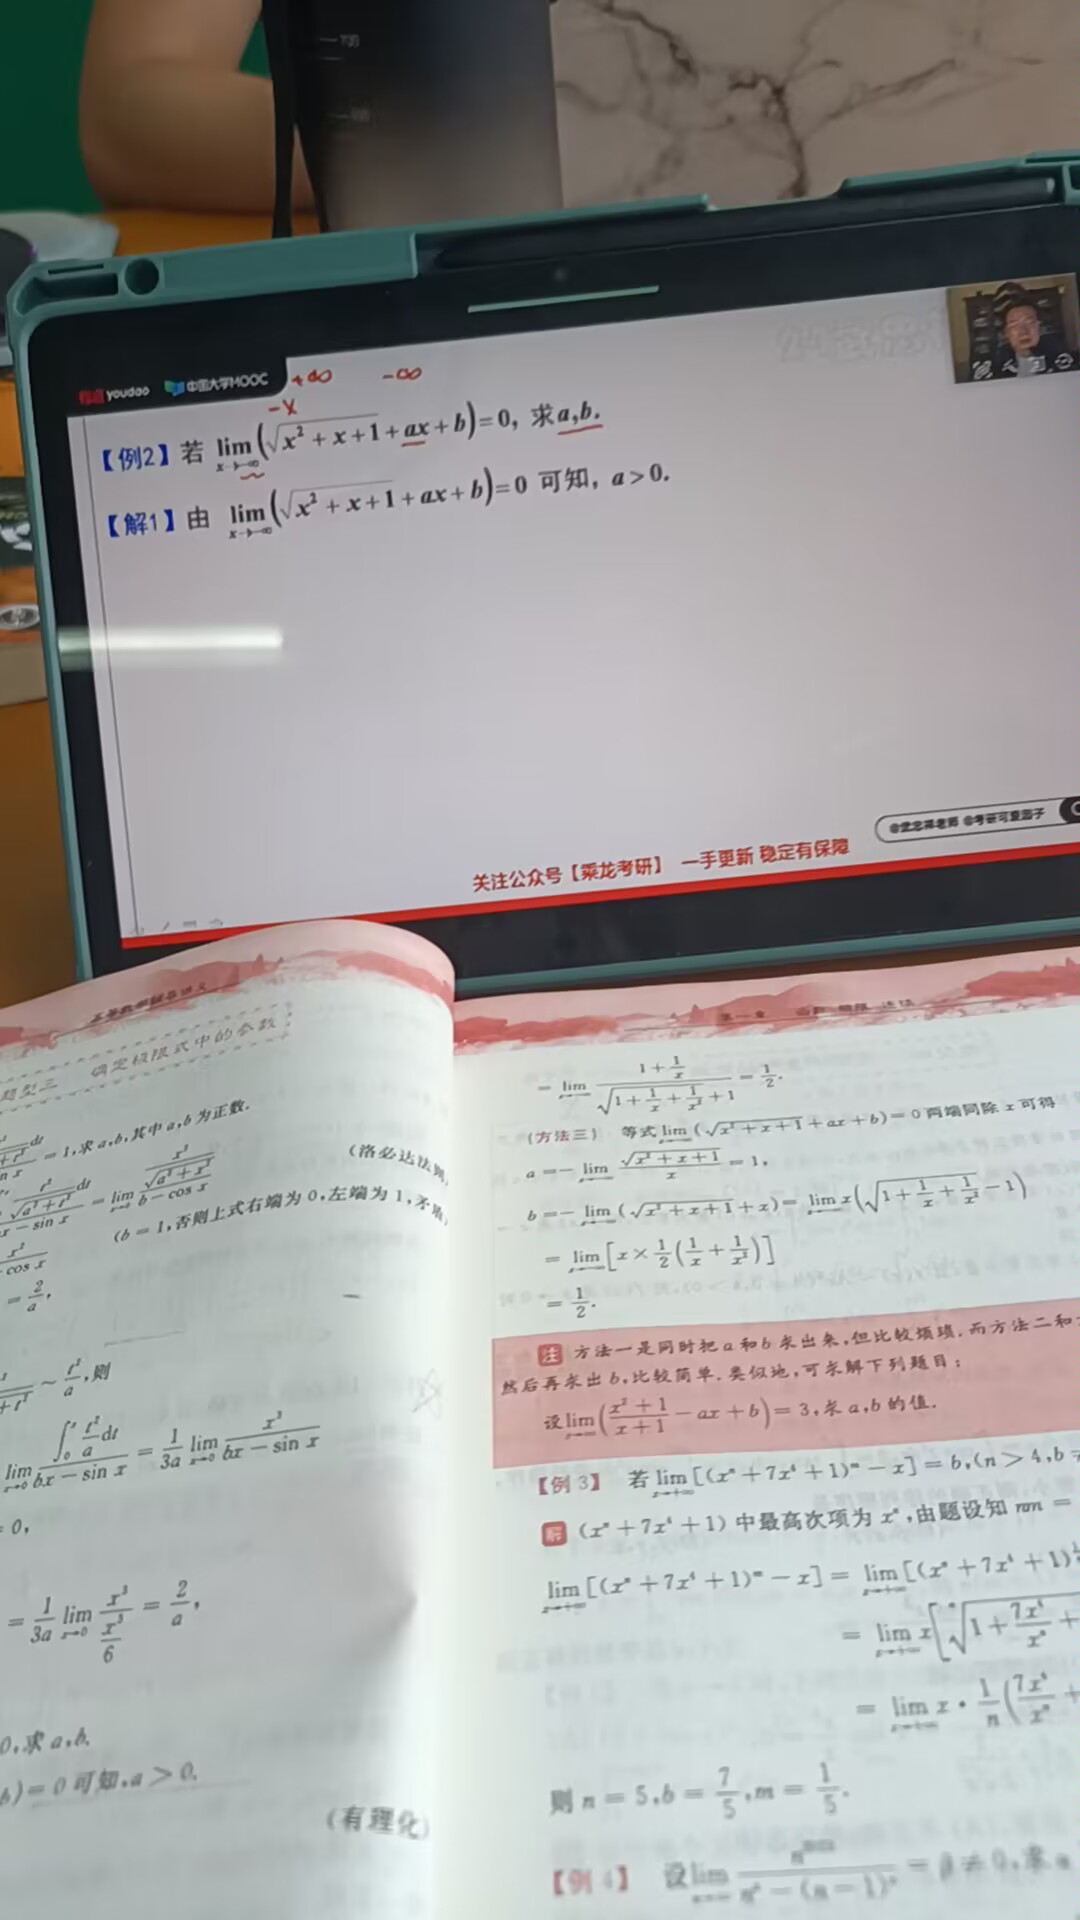 youdao 中国大学MOOC
+∞ -∞
-x
【例2】若 lim x→-∞ (√(x²+x+1)+ax+b)=0, 求a,b.
【解1】由 lim x→-∞ (√(x²+x+1)+ax+b)=0 可知, a>0.
关注公众号【乘龙考研】 一手更新 稳定有保障
题型三 确定极限式中的参数
=1,求a,b,其中a,b为正数.
(洛必达法则
(b=1,否则上式右端为0,左端为1,矛盾
=2/a,
~t²/a,则
lim x→0 ∫₀ˣ t²/a dt/(bx-sin x) = 1/(3a) lim x→0 x³/(bx-sin x)
=0,
=1/(3a) lim x→0 x³/(x³/6) = 2/a,
0,求a,b.
b)=0可知,a>0.
(有理化)
= lim (1+1/x)/(√(1+1/x+1/x²)+1) = 1/2.
(方法三) 等式lim(√(x²+x+1)+ax+b)=0两端同除x可得
a=-lim √(x²+x+1)/x=1,
b=-lim(√(x²+x+1)+x)=lim x(√(1+1/x+1/x²)-1)
=lim[x×1/2(1/x+1/x²)]
=1/2.
注 方法一是同时把a和b求出来,但比较烦琐.而方法二和
然后再求出b,比较简单.类似地,可求解下列题目:
设lim((x²+1)/(x+1)-ax+b)=3,求a,b的值.
【例3】 若lim x→+∞ [(xⁿ+7x⁴+1)ᵐ-x]=b,(n>4,b
解 (xⁿ+7x⁴+1)中最高次项为xⁿ,由题设知nm=
lim x→+∞ [(xⁿ+7x⁴+1)ᵐ-x]=lim x→+∞ [(xⁿ+7x⁴+1)
=lim x→+∞ x[ⁿ√(1+7x⁴/xⁿ+
=lim x→+∞ x·1/n(7x⁴/xⁿ+
则n=5,b=7/5,m=1/5.
【例4】 设lim